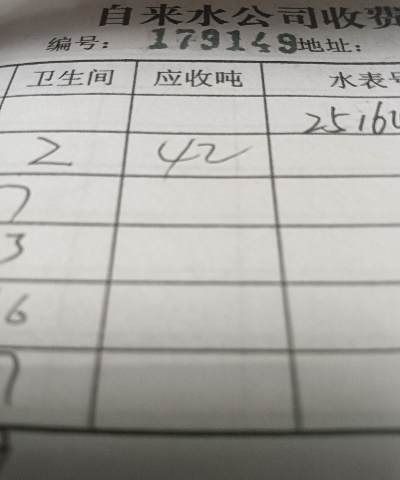 自来水公司收费
编号: 179149 地址:
卫生间 应收吨 水表号
2516
2 42
7
3
6
7